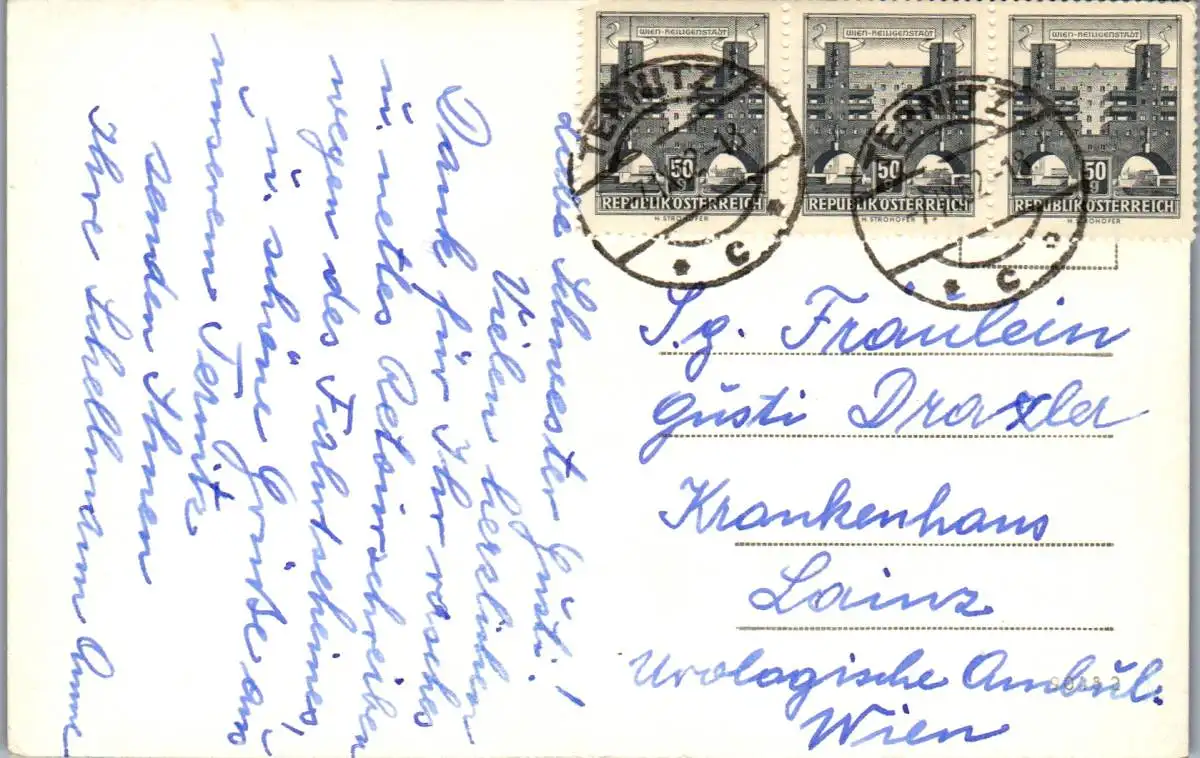 WIEN-HEILIGENSTADT
WIEN-HEILIGENSTADT
WIEN-HEILIGENSTADT
50 g
50 g
50 g
REPUBLIK ÖSTERREICH
REPUBLIK ÖSTERREICH
REPUBLIK ÖSTERREICH
H. STROHOFER
H. STROHOFER
H. STROHOFER
TERNITZ
-18
* C *
TERNITZ
-18
* C
Liebe Schwester Gusti!
Vielen herzlichen
Dank für Ihr rasches
u. nettes Retourschreiben
wegen des Fahrtscheines,
u. schöne Grüße aus
unserem Ternitz
senden Ihnen
Ihre Schellmann
S.g. Fräulein
Gusti Draxler
Krankenhaus
Lainz
Urologische Ambul.
Wien